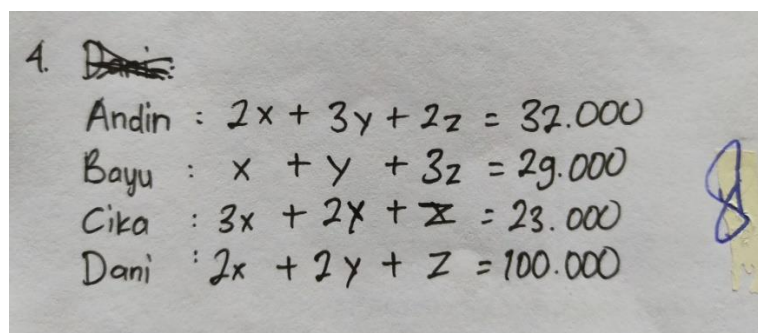 4.
Andin : 2x + 3y + 2z = 32.000
Bayu : x + y + 3z = 29.000
Cika : 3x + 2y + z = 23.000
Dani : 2x + 2y + z = 100.000
8